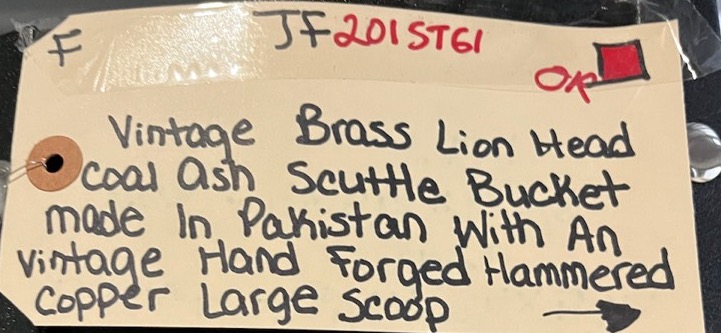 F JF201STG1
OK
Vintage Brass Lion Head
coal Ash Scuttle Bucket
made In Pakistan With An
Vintage Hand Forged Hammered
Copper Large Scoop